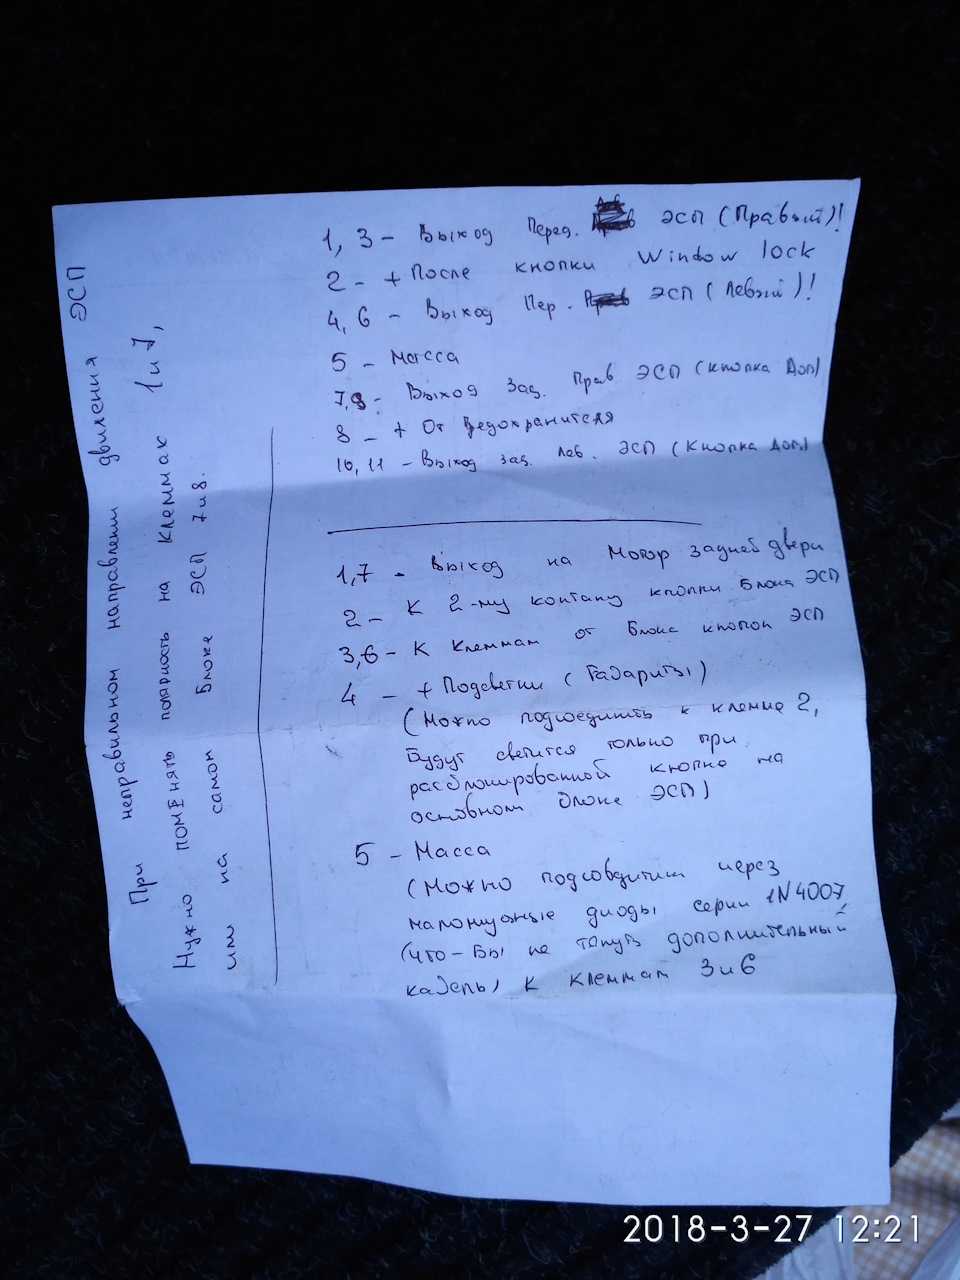 1, 3 - Выход Перед. ЭСП (Правый)!
2 - + После кнопки Window lock
4, 6 - Выход Пер. ЭСП (Левый)!
5 - Масса
7,9 - Выход Зад. Прав ЭСП (кнопка Доп)
8 - + От Предохранителя
10, 11 - Выход зад. Лев. ЭСП (Кнопка Доп)
1,7 - Выход на Мотор задней двери
2 - К 2-му контаку кнопки Блока ЭСП
3,6 - К Клеммам от Блока кнопок ЭСП
4 - + Подсветки (Габариты)
(Можно подсоединить к клемме 2,
Будут светится только при
разблокированной кнопке на
основном блоке ЭСП)
5 - Масса
(Можно подсоедитить через
маломощные диоды серии 1N4007,
(что-Бы не тянуть дополнительный
кабель) К клеммам 3 и 6
При неправильном направлении движения ЭСП
Нужно поменять полярность на Клеммах 1 и 7,
или на самом Блоке ЭСП 7 и 8.
2018-3-27 12:21